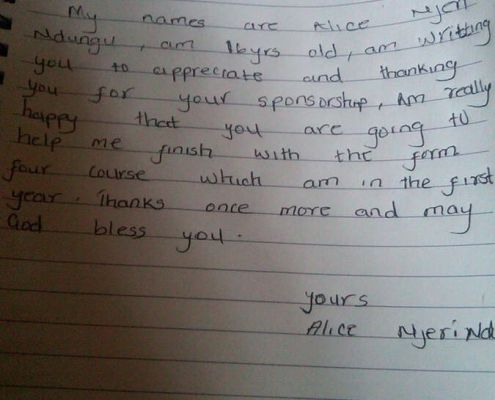 My names are Alice Njeri
Ndungu, am 16yrs old, am writting
you to appreciate and thanking
you for your sponsorship, Am really
happy that you are going to
help me finish with the form
four course which am in the first
year. Thanks once more and may
God bless you.
yours
Alice Njeri Nd